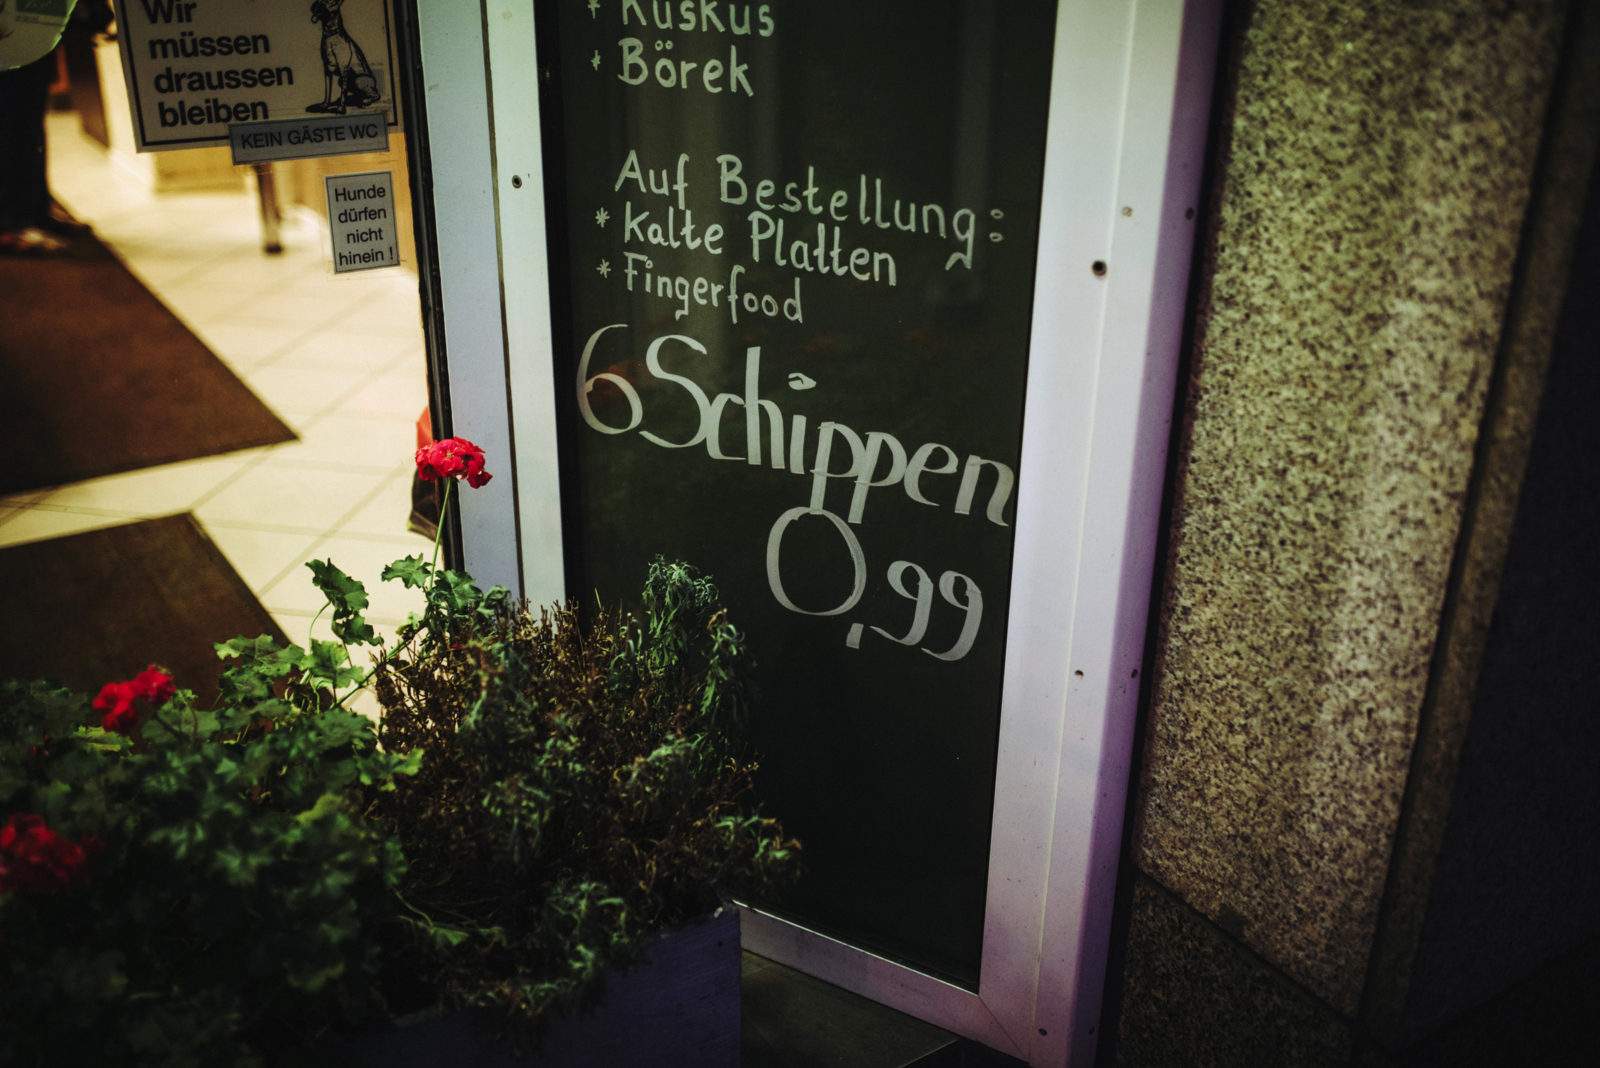 Wir
müssen
draussen
bleiben
KEIN GÄSTE WC
Hunde
dürfen
nicht
hinein !
* Kuskus
* Börek
Auf Bestellung:
* Kalte Platten
* Fingerfood
6 Schippen
0,99